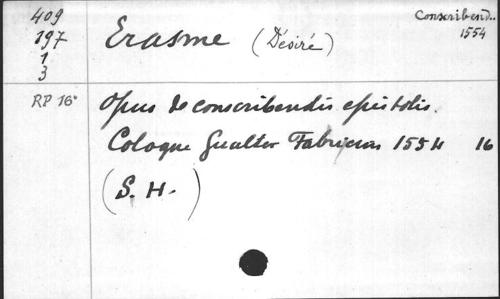 409
197
1
3
Erasme (Désiré)
Conscribend..
1554
RP 16°
Opus de conscribendis epistolis.
Cologne Gualter Fabricius 1554 16
(S. H.)